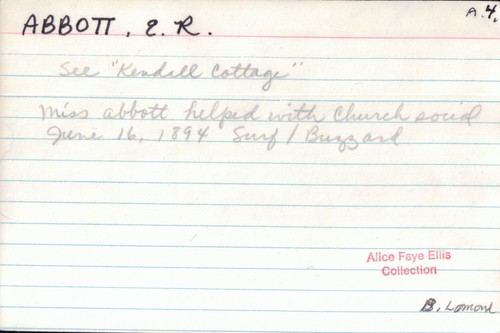 A.4.
ABBOTT, E. R.
See "Kendall Cottage"
Miss Abbott helped with Church social
June 16, 1894 Surf / Buzzard
Alice Faye Ellis
Collection
B. Lomont